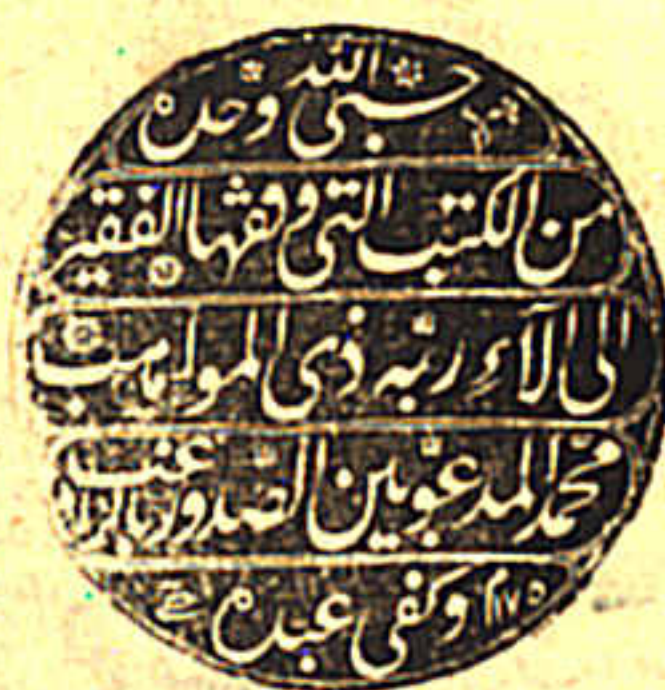 حسبي الله وحده
من الكتب التي وقفها الفقير
الى الآء ربه ذي المواهب
محمد المدعو بين الصدور بالراغب
وكفى عبده